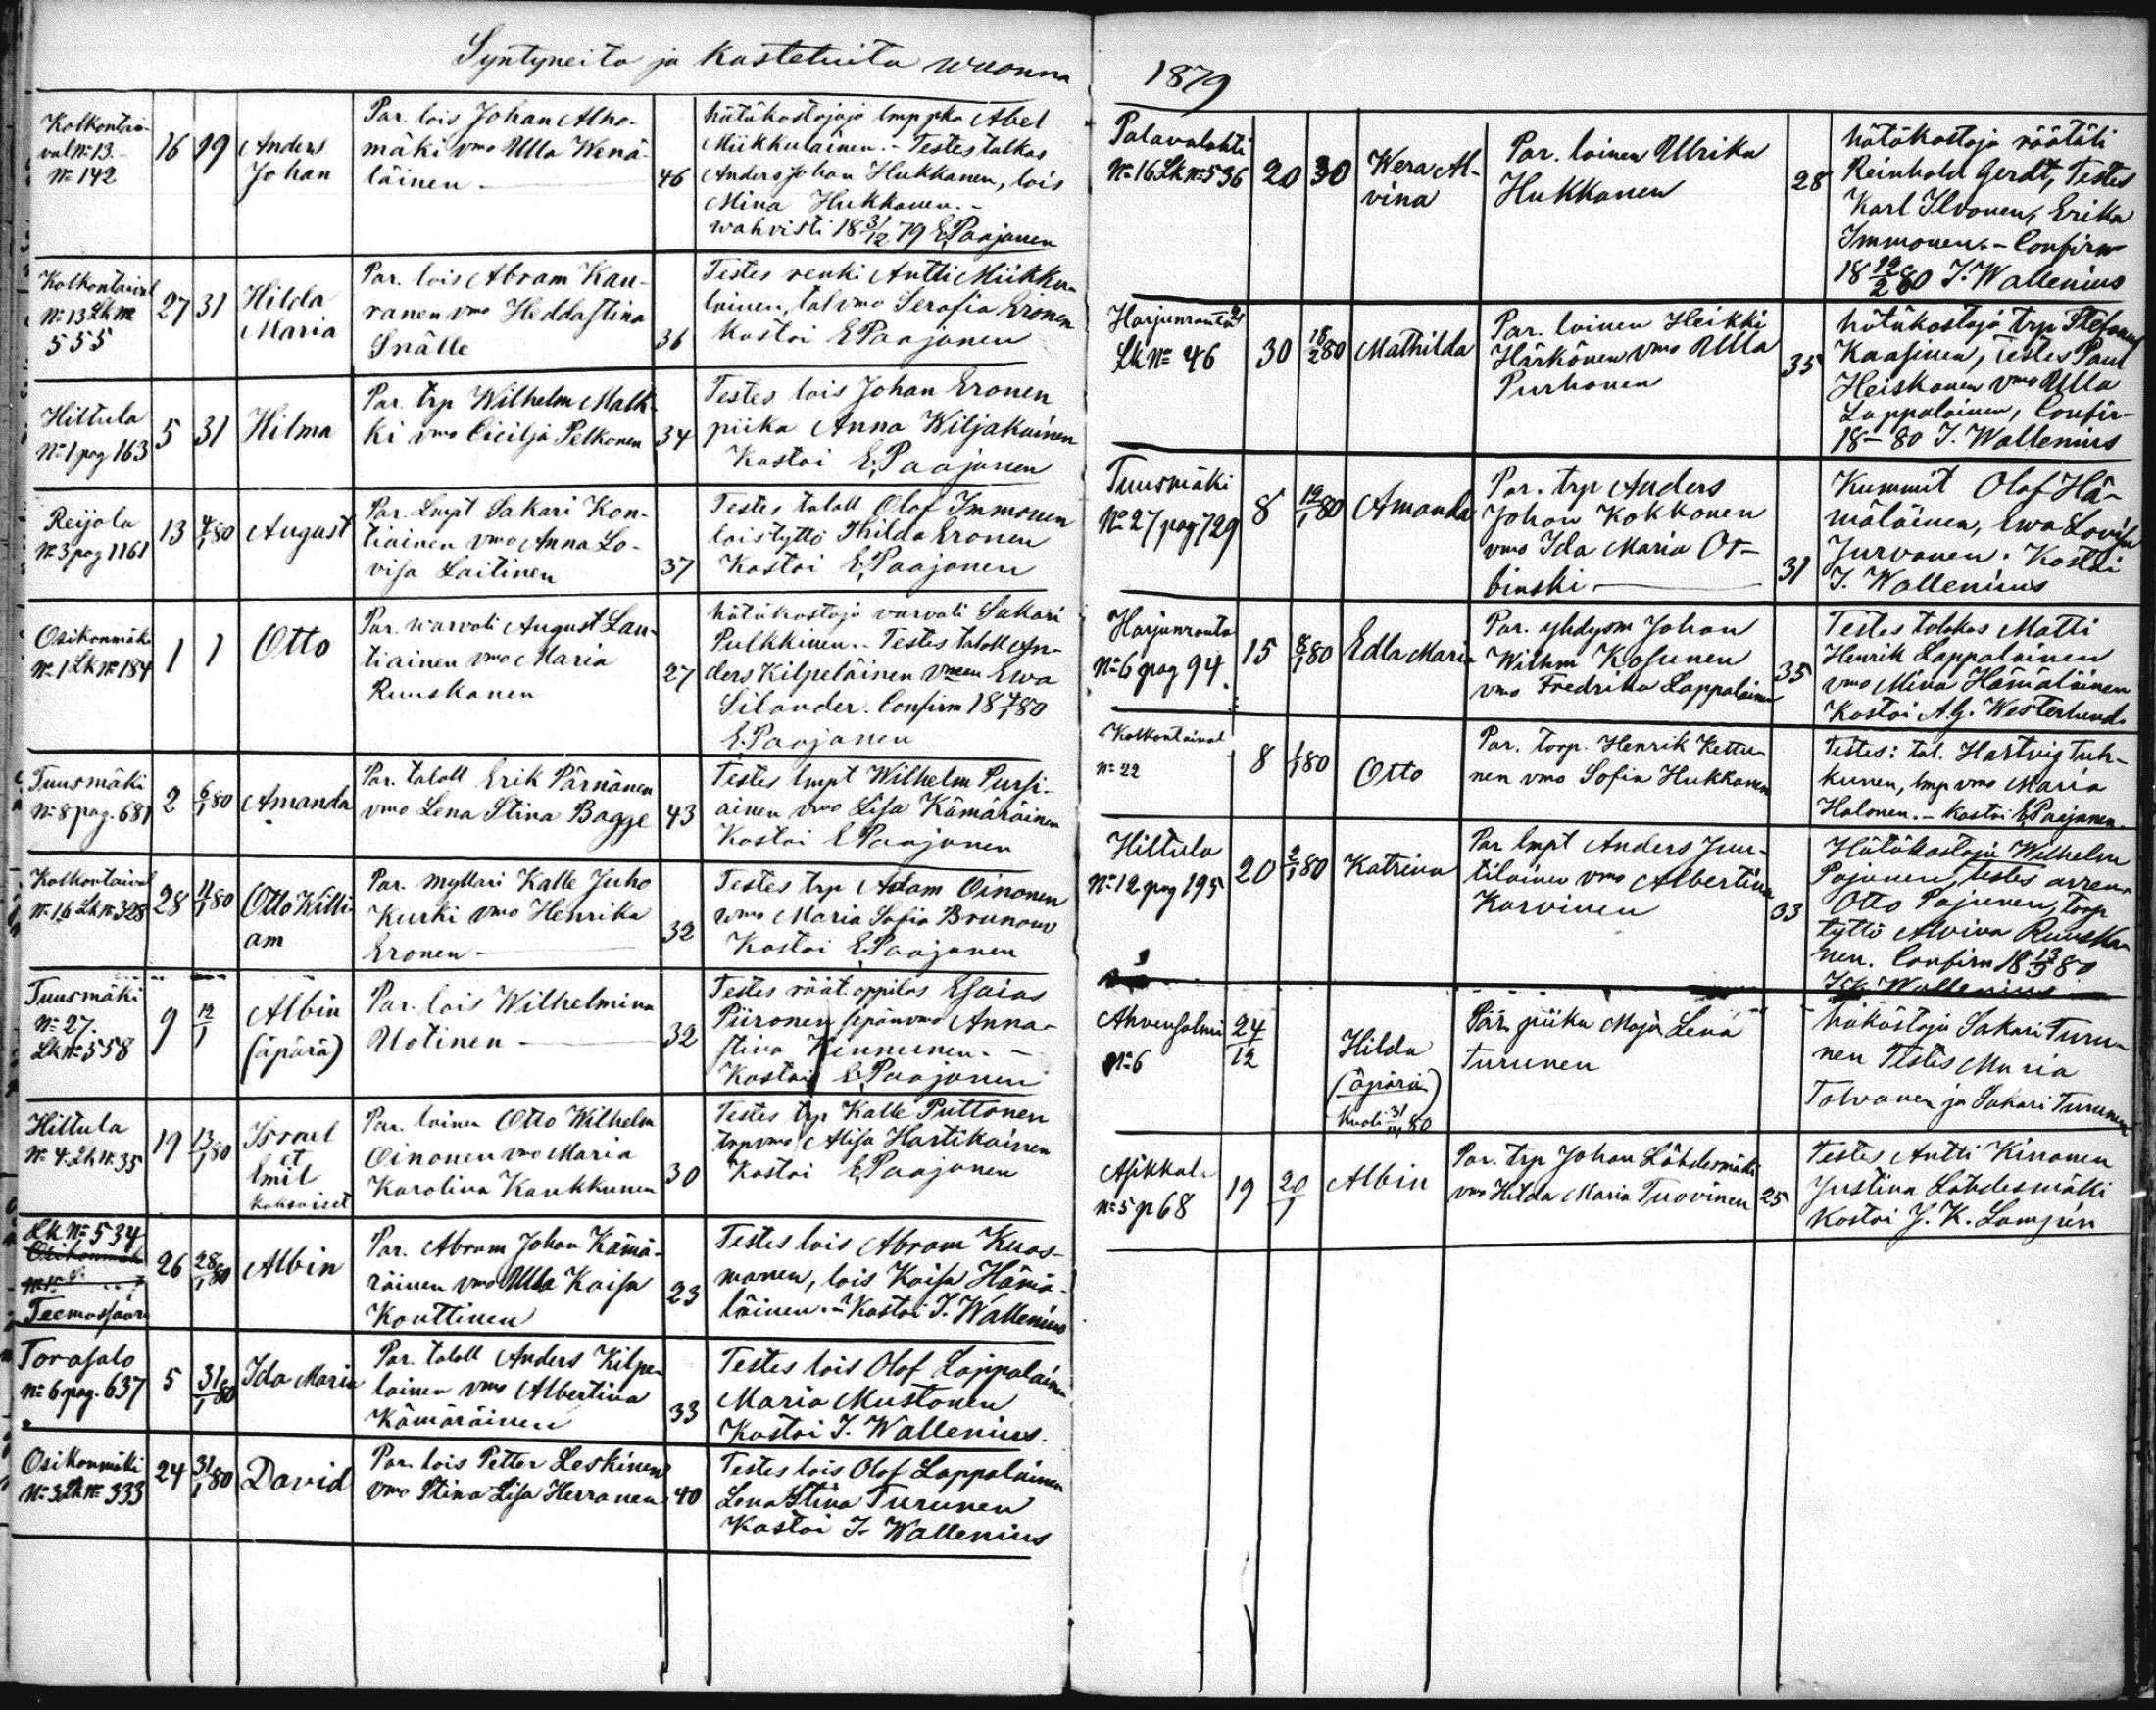 Syntyneitä ja kastetuita wuonna
Kolkontai-
val N:o 13.
N:o 142
16 19 Anders
Johan
Par. lois Johan Alho-
mäki vmo Ulla Wenä-
läinen
46
hätäkastaja lmp pka Abel
Miikkulainen. - Testes talkas
Anders Johan Hukkanen, lois
Mina Hukkanen. -
wahvisti 18 31/12 79 E. Paajanen
Kolkontaival
N:o 13 Lk N:o
555
27 31 Hilda
Maria
Par. lois Abram Kau-
ranen vmo Hedda Stina
Snälle
36
Testes renki Antti Miikku-
lainen, tal vmo Serafia Eronen
Kastoi E Paajanen
Hiltula
N:o 1 pag 163
5 31 Hilma
Par. trp Wilhelm Malk-
ki vmo Cicilja Pelkonen
34
Testes lois Johan Eronen
piika Anna Wiljakainen
Kastoi E. Paajanen
Reijola
N:o 3 pag 1161
13 4/1 80 August
Par. Lmpt Sakari Kon-
tiainen vmo Anna Lo-
visa Laitinen
37
Testes taloll Olof Immonen
lois tyttö Thilda Eronen
Kastoi E. Paajanen
Osikonmäki
N:o 1 Lk N:o 184
1 1 Otto
Par. warvali August Lau-
tiainen vmo Maria
Ruuskanen
27
hätäkastaja varvali Sakari
Pulkkinen. - Testes taloll An-
ders Kilpeläinen vmeen Ewa
Silander. Confirm 18 4/1 80
E. Paajanen
Tuusmäki
N:o 8 pag. 681
2 6/1 80 Amanda
Par. taloll Erik Pärnänen
vmo Lena Stina Bagge
43
Testes lmpt Wilhelm Pursi-
ainen vmo Lisa Kämäräinen
Kastoi E Paajanen
Kolkontaival
N:o 16 Lk N:o 328
28 11/1 80 Otto Willi
am
Par. myllari Kalle Juho
Kurki vmo Henrika
Eronen
32
Testes trp Adam Oinonen
vmo Maria Sofia Brunouv
Kastoi E. Paajanen
Tuusmäki
N:o 27.
Lk N:o 558
9 12/1 Albin
(äpärä)
Par. lois Wilhelmina
Utotinen
32
Testes räät. oppilas Esaias
Piironen sepän vmo Anna-
stina Kinnunen. -
Kastoi E. Paajanen
Hiltula
N:o 4. Lk N:o 35
19 13/1 80 Israel
et
Emil
kaksoiset
Par. loinen Otto Wilhelm
Oinonen vmo Maria
Karolina Kaukkunen
30
Testes trp Kalle Puttonen
trp vmo Alisa Hartikainen
Kastoi E. Paajanen
Lk N:o 534
Teemassaari
26 28/1 80 Albin
Par. Abram Johan Kämä-
räinen vmo Ulla Kaisa
Konttinen
23
Testes lois Abram Kuos-
manen, lois Kaisa Hämä-
läinen. - Kastoi J. Wallenius
Torasalo
N:o 6 pag. 637
5 31/1 80 Ida Maria
Par. taloll Anders Kilpe-
lainen vmo Albertina
Kämäräinen
33
Testes lois Olof Lappalainen
Maria Mustonen
Kastoi J. Wallenius.
Osikonmäki
N:o 3 Lk N:o 333
24 31/1 80 David
Par. lois Petter Leskinen
vmo Stina Lisa Herranen
40
Testes lois Olof Lappalainen
Lena Stina Turunen
Kastoi J. Wallenius
1879
Palavalahti
N:o 16 Lk N:o 536
20 30 Wera Al-
vina
Par. loinen Ulrika
Hukkanen
28
hätäkastaja räätäli
Reinhold Gerdt, Testes
Karl Ilvonen, Erika
Immonen. - Confirm
18 12/2 80 J. Wallenius
Harjunranta 2
Lk N:o 46
30 18/2 80 Mathilda
Par. loinen Heikki
Härkönen vmo Ulla
Purhonen
35
hätäkastaja trp Stefanus
Kaasinen, Testes Paul
Heiskanen vmo Ulla
Lappalainen, Confir-
18- 80 J. Wallenius
Tuusmäki
N:o 27 pag 729
8 12/1 80 Amanda
Par. trp Anders
Johan Kokkonen
vmo Ida Maria Or-
binski
31
Kummit Olof Hä-
mäläinen, Ewa Lovisa
Jurvanen. Kastoi
J. Wallenius
Harjunranta
N:o 6 pag 94
15 8/1 80 Edla Maria
Par. yhdysm Johan
Wilhm Kosunen
vmo Fredrika Lappalainen
35
Testes talokas Matti
Henrik Lappalainen
vmo Mina Hämäläinen
Kastoi A. G. Westerlund.
Kolkontaival
N:o 22
8 1/1 80 Otto
Par. torp. Henrik Kettu-
nen vmo Sofia Hukkanen
Testes: tal. Hartvig Tuh-
kunen, lmp vmo Maria
Halonen. - Kastoi E. Paajanen.
Hiltula
N:o 12 pag 195
20 2/1 80 Katrina
Par lmpt Anders Juu-
tilainen vmo Albertina
Karvinen
33
Hätäkastaja Wilhelm
Pajunen, testes arren.
Otto Pajunen, torp
tyttö Alvina Ruuska-
nen. Confirm 18 13/3 80
Wallenius
Ahvensalmi
N:o 6
24/12
Hilda
(äpärä)
kuoli 31/ 80
Pär. piika Maja Lena
Turunen
hätäkastaja Sakari Turu-
nen Testes Maria
Tolvanen ja Sakari Turunen
Asikkala
N:o 5 p 68
19 20/1 Albin
Par. trp Johan Lähdesmäki
vmo Hilda Maria Tuovinen
25
Testes Antti Kinonen
Justina Lähdesmäki
Kastoi J. K. Lamsén